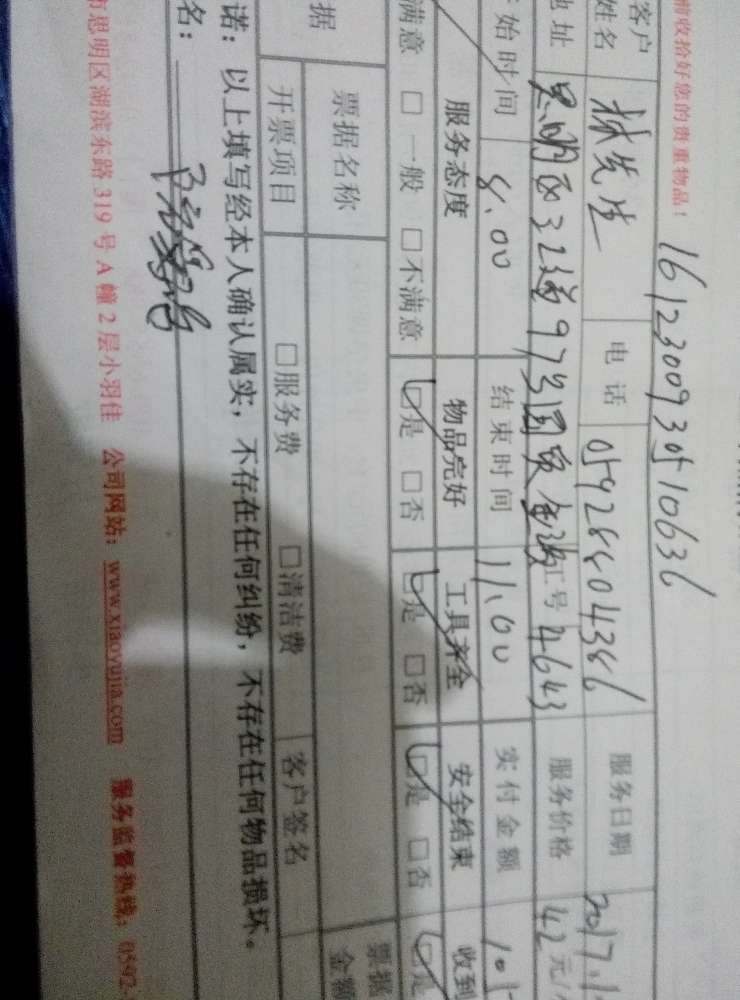 前收拾好您的贵重物品！
1612300930510636
客户姓名 林先生 电话 05928804386 服务日期 2017.1
地址 思明区 工号 4643 服务价格 42元/
开始时间 8.00 结束时间 11.00 实付金额
服务态度 物品完好 工具齐全 安全结束 收到
满意 □一般 □不满意 □是 □否 □是 □否 □是 □否 □是
据 票据名称 票据金额
开票项目 □服务费 □清洁费 客户签名
诺：以上填写经本人确认属实，不存在任何纠纷，不存在任何物品损坏。
名：
市思明区湖滨东路319号A幢2层小羽佳 公司网站：www.xiaoyujia.com 服务监督热线：0592-